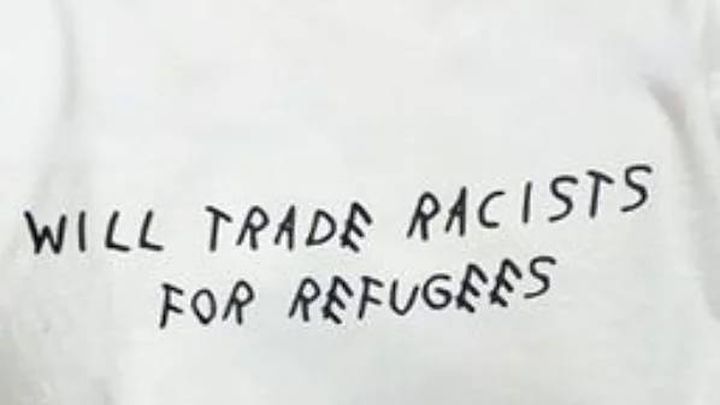 WILL TRADE RACISTS
FOR REFUGEES